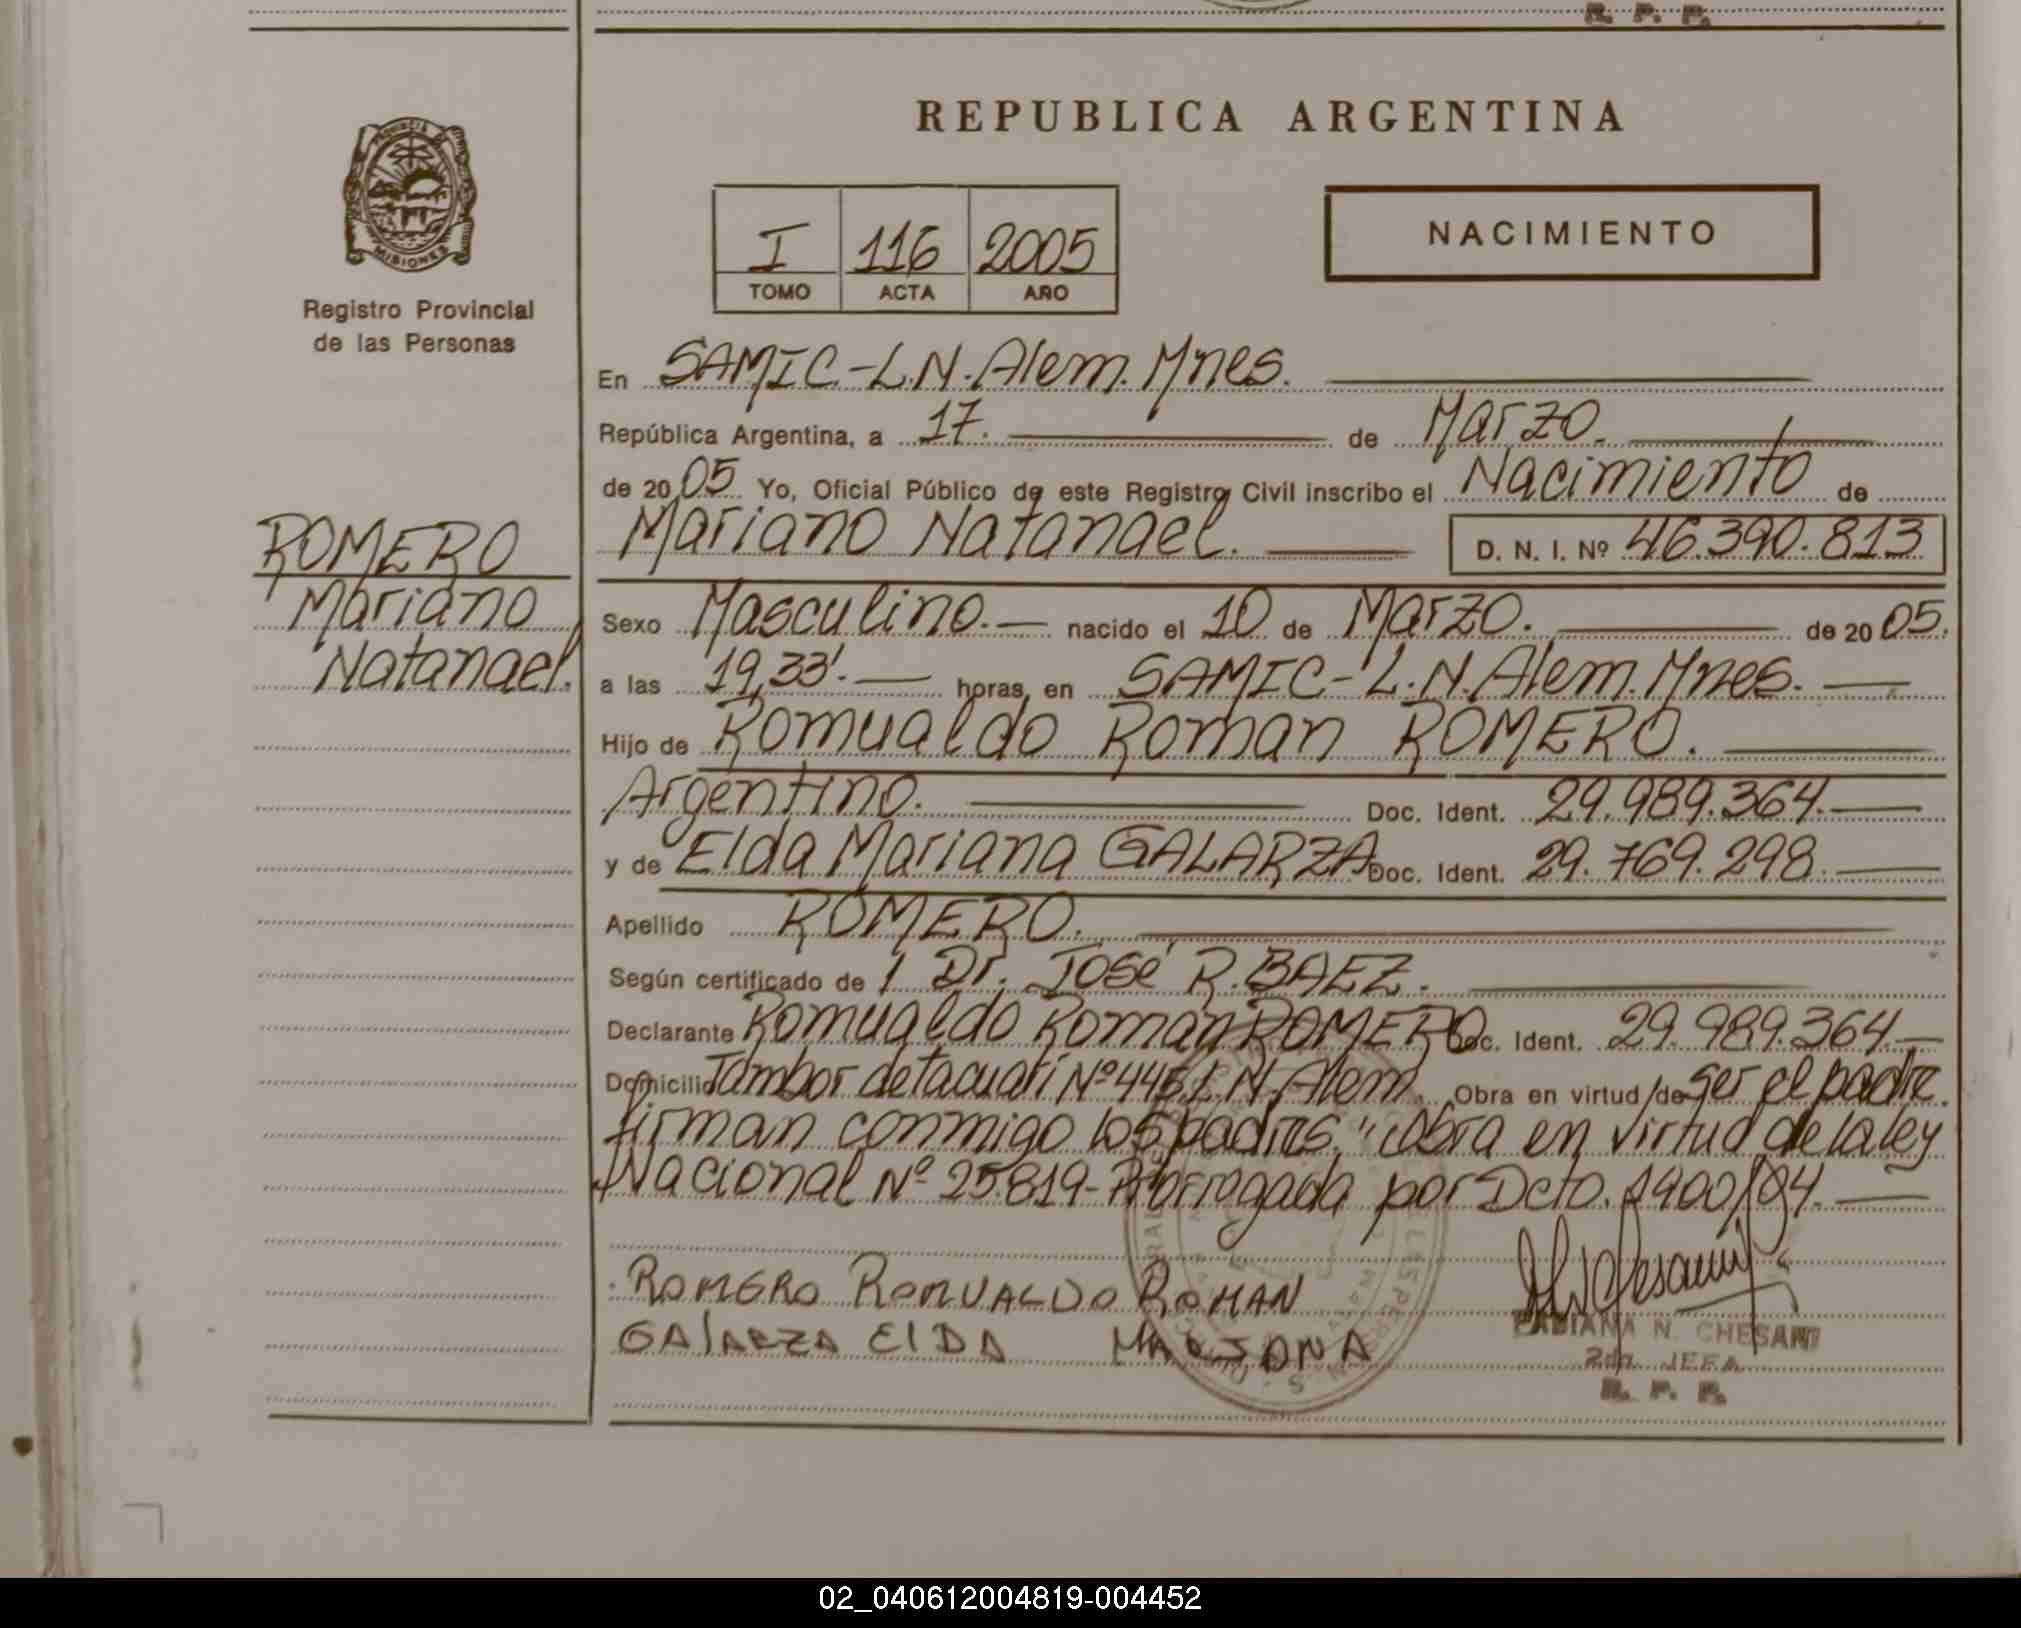 R. P. P.
PROVINCIA DE
MISIONES
Registro Provincial
de las Personas
ROMERO
Mariano
Natanael.
REPUBLICA ARGENTINA
I 116 2005
TOMO ACTA AÑO
NACIMIENTO
En SAMIC-L.N.Alem.Mnes.
República Argentina, a 17. de Marzo.
de 2005 Yo, Oficial Público de este Registro Civil inscribo el Nacimiento de
Mariano Natanael. D. N. I. Nº 46.390.813
Sexo Masculino. nacido el 10 de Marzo. de 2005.
a las 19,33'. horas, en SAMIC-L.N.Alem.Mnes.
Hijo de Romualdo Roman ROMERO.
Argentino. Doc. Ident. 29.989.364.
y de Elda Mariana GALARZA Doc. Ident. 29.769.298.
Apellido ROMERO.
Según certificado de / Dr. José R.BAEZ.
Declarante Romualdo Roman ROMERO Doc. Ident. 29.989.364.
Domicilio Tambor de tacuarí Nº 445 L.N.Alem. Obra en virtud de ser el padre.
firman conmigo los padres. "Obra en virtud de la ley
Nacional Nº 25.819- Prorrogada por Dcto. 1900/04.
ROMERO ROMUALDO ROMAN
GALARZA ElDA MARIANA
FABIANA N. CHESANI
2da. JEFA
R. P. P.
02_040612004819-004452